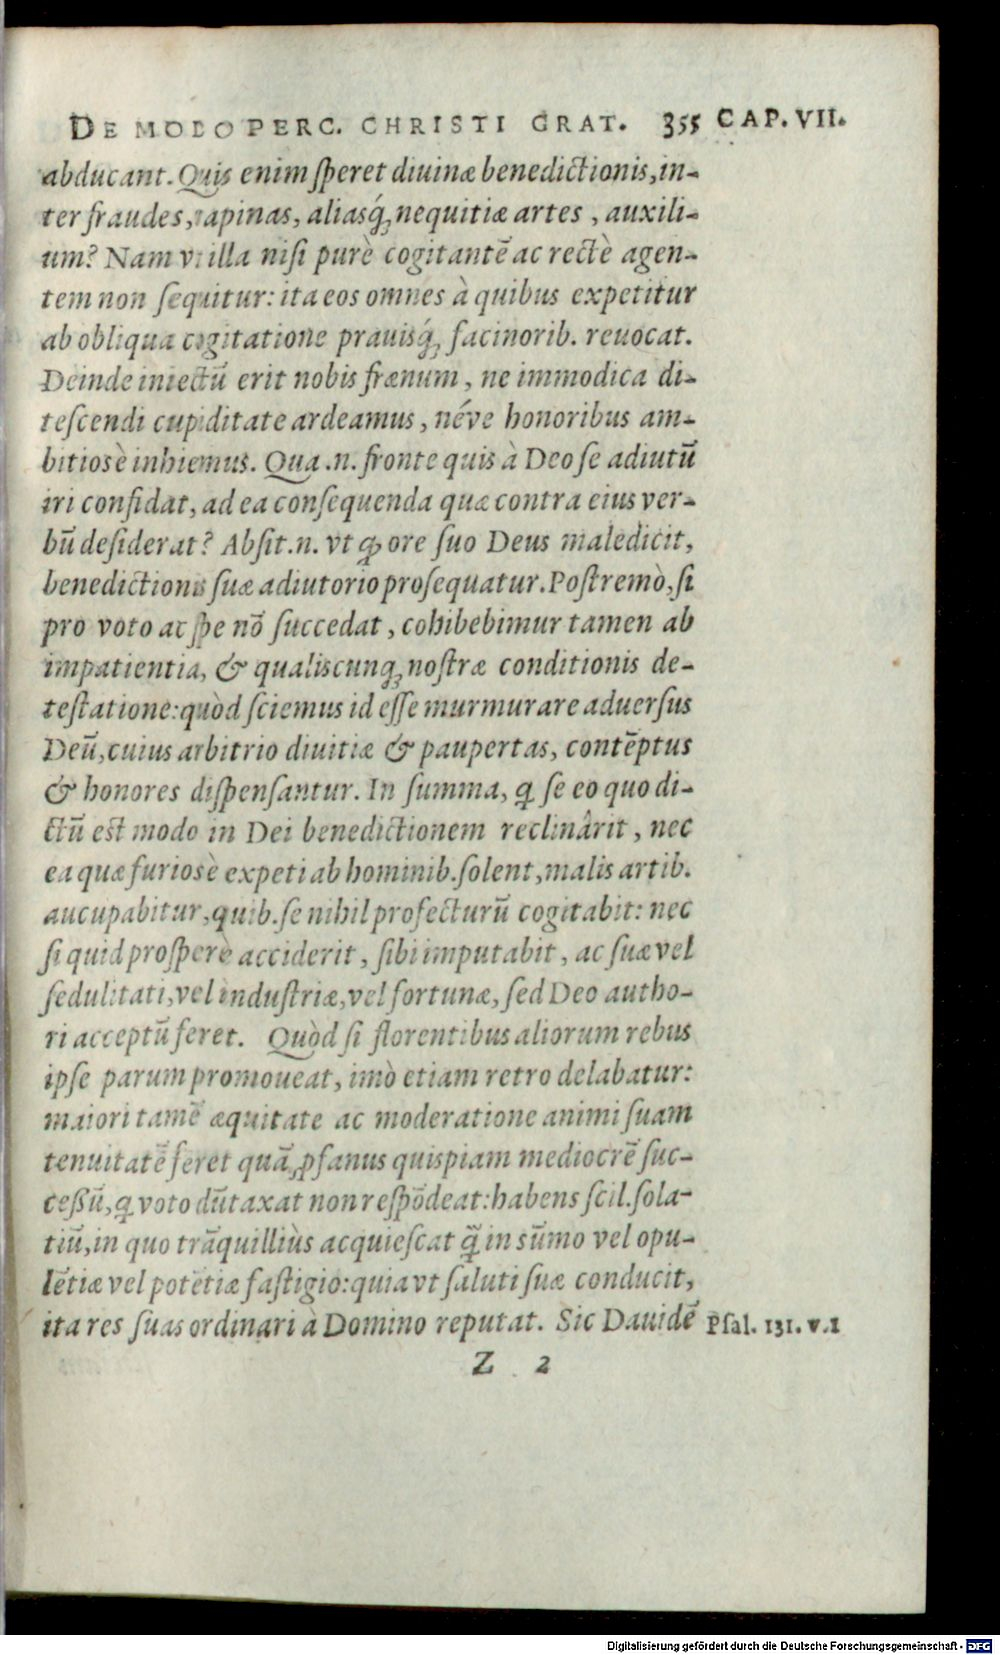 DE MODO PERC. CHRISTI GRAT. 355 CAP. VII.
abducant. Quis enim ſperet diuinæ benedictionis, in-
ter fraudes, rapinas, aliasq́ꝫ nequitiæ artes, auxili-
um? Nam vt illa niſi purè cogitantē ac rectè agen-
tem non ſequitur: ita eos omnes à quibus expetitur
ab obliqua cogitatione prauisq́ꝫ facinorib. reuocat.
Deinde iniectū erit nobis frænum, ne immodica di-
teſcendi cupiditate ardeamus, néve honoribus am-
bitiosè inhiemus. Qua .n. fronte quis à Deo ſe adiutū
iri confidat, ad ea conſequenda quæ contra eius ver-
bū deſiderat? Abſit .n. vt qꝫ ore ſuo Deus maledicit,
benedictionis ſuæ adiutorio proſequatur. Poſtremò, ſi
pro voto ac ſpe nō ſuccedat, cohibebimur tamen ab
impatientia, & qualiscunqꝫ noſtræ conditionis de-
teſtatione: quòd ſciemus id eſſe murmurare aduerſus
Deū, cuius arbitrio diuitiæ & paupertas, contēptus
& honores diſpenſantur. In ſumma, ꝗ ſe eo quo di-
ctū eſt modo in Dei benedictionem reclinârit, nec
ea quæ furiosè expeti ab hominib. ſolent, malis artib.
aucupabitur, quib. ſe nihil profecturū cogitabit: nec
ſi quid proſperè acciderit, ſibi imputabit, ac ſuæ vel
ſedulitati, vel induſtriæ, vel fortunæ, ſed Deo autho-
ri acceptū feret. Quòd ſi florentibus aliorum rebus
ipſe parum promoueat, imò etiam retro delabatur:
maiori tamē æquitate ac moderatione animi ſuam
tenuitatē feret quā ꝓfanus quiſpiam mediocrē ſuc-
ceßū, ꝗ voto dūtaxat non reſpōdeat: habens ſcil. ſola-
tiū, in quo trāquilliùs acquieſcat ꝗ̃ in sūmo vel opu-
lētiæ vel potētiæ faſtigio: quia vt ſaluti ſuæ conducit,
ita res ſuas ordinari à Domino reputat. Sic Dauidē Pſal. 131. v.1
Z 2
Digitalisierung gefördert durch die Deutsche Forschungsgemeinschaft - DFG